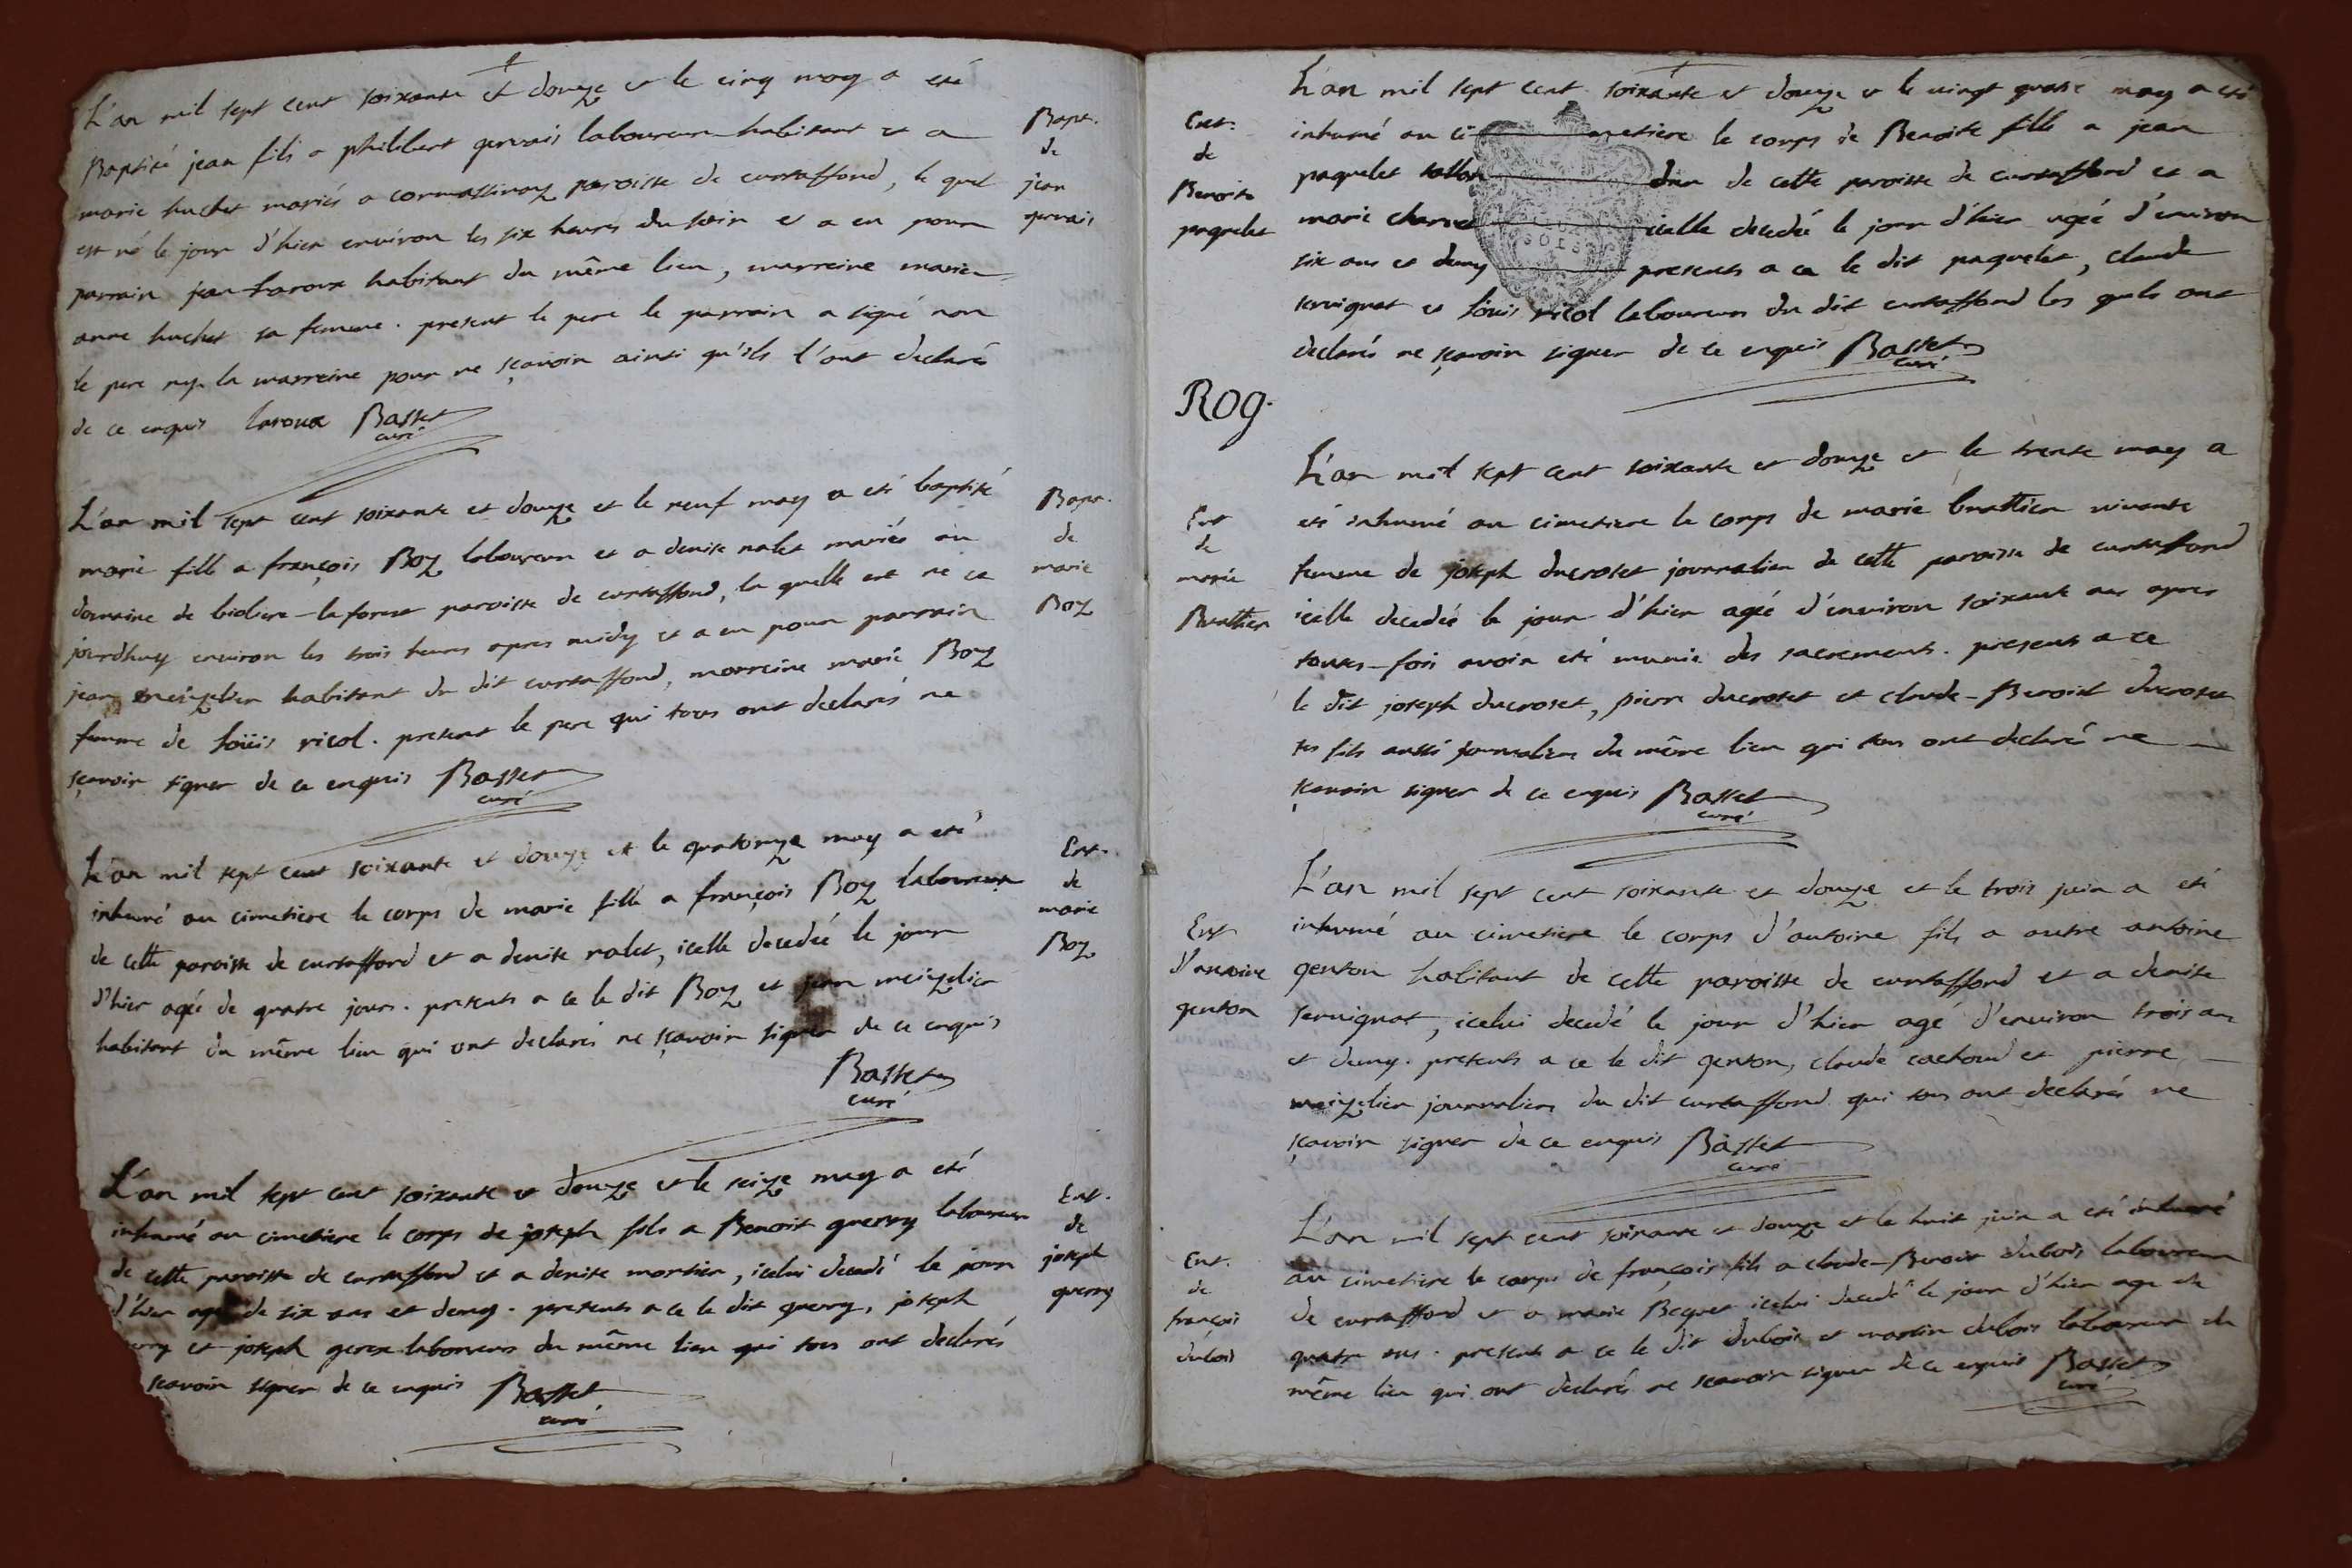 L'an mil sept cent soixante et douze et le cinq may a eté
Baptisé jean fils a philibert gervais laboureur habitant et a
marie huchet mariés a cormassinoy paroisse de curtaffond, le quel
est né le jour d'hier environ les six heures du soir et a eu pour
parrain jean laroux habitant du même lieu, marreine marie
anne huchet sa femme. present le pere le parrain a signé non
le pere ny la marreine pour ne sçavoir ainsi qu'ils l'ont declarés
de ce enquis laroux Basset
curé
Bapt.
de
jean
gervais
L'an mil sept cent soixante et douze et le neuf may a eté baptisé
marie fille a françois Boz laboureur et a denise nalet mariés au
domaine de la forest paroisse de curtaffond, la quelle est né ce
jourdhuy environ les trois heures apres midy et a eu pour parrain
jean meizelier habitant du dit curtaffond, marreine marie Boz
femme de loüis vicol. present le pere qui tous ont declarés ne
sçavoir signer de ce enquis Basset
curé
Bapt.
de
marie
Boz
L'an mil sept cent soixante et douze et le quatorze may a eté
inhumé au cimetiere le corps de marie fille a françois Boz laboureur
de cette paroisse de curtaffond et a denise nalet, icelle decedée le jour
d'hier agée de quatre jours. presents a ce le dit Boz et jean meizelier
habitant du même lieu qui ont declarés ne sçavoir signer de ce enquis
Basset
curé
Ent.
de
marie
Boz
L'an mil sept cent soixante et douze et le seize may a eté
inhumé au cimetiere le corps de joseph fils a Benoit guerry laboureur
de cette paroisse de curtaffond et a denise mortier, icelui decedé le jour
d'hier agé de six ans et demy. presents a ce le dit guerry, joseph
et joseph laboureurs du même lieu qui tous ont declarés
scavoir signer de ce enquis Basset
curé
Ent.
de
joseph
guerry
L'an mil sept cent soixante et douze et le vingt quatre may a eté
inhumé au cimetiere le corps de Benoite fille a jean
paquelet de cette paroisse de curtaffond et a
marie icelle decedé le jour d'hier agée d'environ
six ans et demy presents a ce le dit paquelet, claude
servignat et loüis vicol laboureurs du dit curtaffond les quels ont
declarés ne sçavoir signer de ce enquis Basset
curé
Ent.
de
Benoite
paquelet
Rog.
L'an mil sept cent soixante et douze et le trente may a
eté inhumé au cimetiere le corps de marie brattier vivante
femme de joseph ducroset journalier de cette paroisse de curtaffond
icelle decedée le jour d'hier agée d'environ soixante ans apres
toutes-fois avoir eté munie des sacrements. presents a ce
le dit joseph ducroset, pierre ducroset et claude-Benoist ducroset
ses fils aussi journaliers du même lieu qui tous ont declaré ne
sçavoir signer de ce enquis Basset
curé
Ent
de
marie
Brattier
L'an mil sept cent soixante et douze et le trois juin a eté
inhumé au cimetiere le corps d'antoine fils a autre antoine
genton habitant de cette paroisse de curtaffond et a denise
servignat, icelui decedé le jour d'hier agé d'environ trois ans
et demy. presents a ce le dit genton, claude cachoud et pierre
meizelier journaliers du dit curtaffond qui tous ont declarés ne
sçavoir signer de ce enquis Basset
curé
Ent
d'antoine
genton
L'an mil sept cent soixante et douze et le huit juin a eté inhumé
au cimetiere le corps de françois fils a claude-Benoit dubois laboureur
de curtaffond et a marie Beguet icelui decedé le jour d'hier agé de
quatre ans. presents a ce le dit dubois et martin dubois laboureur du
même lieu qui ont declarés ne scavoir signer de ce enquis Basset
curé
Ent.
de
françois
dubois